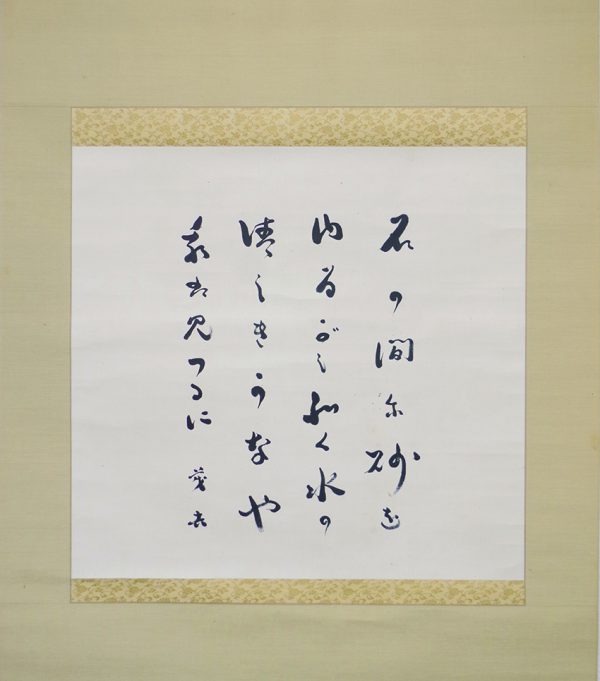 石の間に砂を
ゆるがしわく水の
清しきかなや
我は見つるに 茂吉